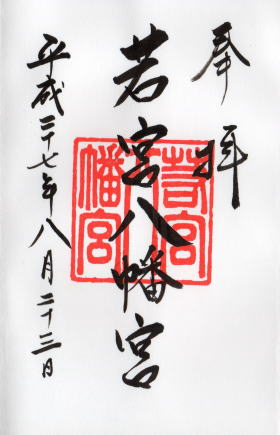 奉拝
若宮八幡宮
平成二十七年八月二十三日
若宮八幡宮